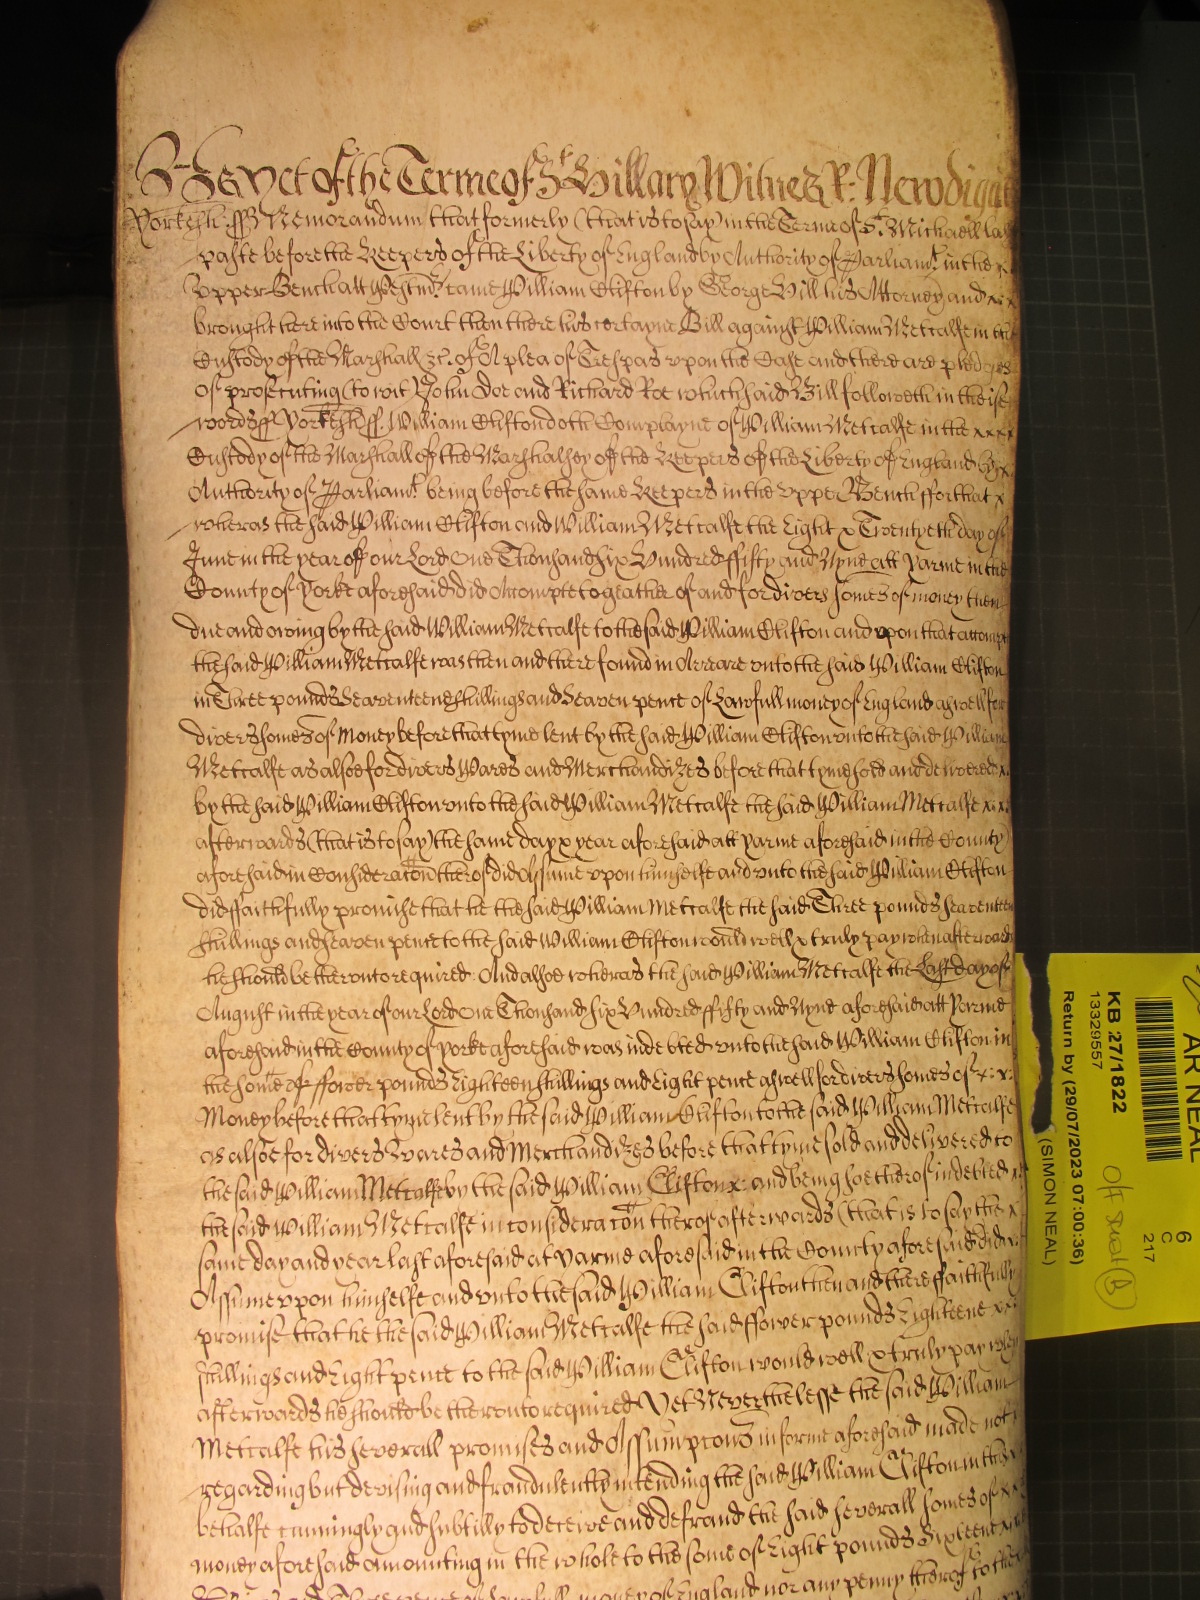 As yet of the Terme of St Hillary Witnes R: Newdigat
Yorksh: ss Memorandum that formerly (that is to say) in the Terme of St. Michaell last
paste before the Keepers of the Liberty of England by Authority of Parliamt. in the x
Upper Bench att Westmr. came William Clifton by George Hill his Attorney and x x x
brought here into the Court then there his certayne Bill against William Metcalfe in the
Custody of the Marshall &c. of A plea of Trespas upon the Case and there are pledges
of prosecuting (to wit) John Doe and Richard Roe which said Bill followeth in these
words ss Yorksh ss. William Clifton doth Complayne of William Metcalfe in the x x x x
Custody of the Marshall of the Marshalsey of the Keepers of the Liberty of England by x
Authority of Parliamt. being before the same Keepers in the upper Bench ffor that x
wheras the said William Clifton and William Metcalfe the Eight & Twentyeth day of
June in the year of our Lord One Thousand six Hundred ffifty and Nyne att Yarme in the
County of Yorke aforesaid did Accompte togeather of and for divers somes of money then
due and owing by the said William Metcalfe to the said William Clifton and upon that accompt
the said William Metcalfe was then and there found in Arreare unto the said William Clifton
in Three pounds Seaventeene shillings and Seaven pence of Lawfull money of England aswell for
divers somes of Money before that tyme lent by the said William Clifton unto the said William
Metcalfe as alsoe for divers Wares and Merchandizes before that tyme sold and delivered x
by the said William Clifton unto the said William Metcalfe the said William Metcalfe x x x
afterwards (that is to say) the same day & year aforesaid att Yarme aforesaid in the County
aforesaid in Consideracon therof did Assume upon himselfe and unto the said William Clifton
did ffaithfully promise that he the said William Metcalfe the said Three pounds seaventeen
shillings and seaven pence to the said William Clifton would well & truly pay when afterwards
he should be therunto required And alsoe wheras the said William Metcalfe the Last day of
August in the year of our Lord One Thousand six Hundred ffifty and Nyne aforesaid att Yarme
aforesaid in the County of Yorke aforesaid was indebted unto the said William Clifton in
the some of ffower pounds Eighteen shillings and Eight pence aswell for divers somes of x: x:
Money before that tyme lent by the said William Clifton to the said William Metcalfe
as alsoe for divers Wares and Merchandizes before that tyme sold and delivered to
the said William Metcalfe by the said William Clifton x: and being soe therof indebted x
the said William Metcalfe in consideracon therof afterwards (that is to say the x
same day and year last aforesaid at Yarme aforesaid in the County aforesaid did x
Assume upon himselfe and unto the said William Clifton then and there ffaithfully
promise that he the said William Metcalfe the said ffower pounds Eighteene x x
shillings and Eight pence to the said William Clifton would well & truly pay when
afterwards he should be therunto required Yet Neverthelesse the said William
Metcalfe his severall promises and Assumpcons in forme aforesaid made not
regarding but devising and fraudulently intending the said William Clifton in this
behalfe cunningly and subtilly to deceive and defraud the said severall somes of x x
money aforesaid amounting in the whole to the some of Eight pounds Sixteene x
and Three pence of Lawfull money of England nor any penny therof to the
AR NEAL
KB 27/1822
13329557
Return by (29/07/2023 07:00:36)
(SIMON NEAL)
6
C
217